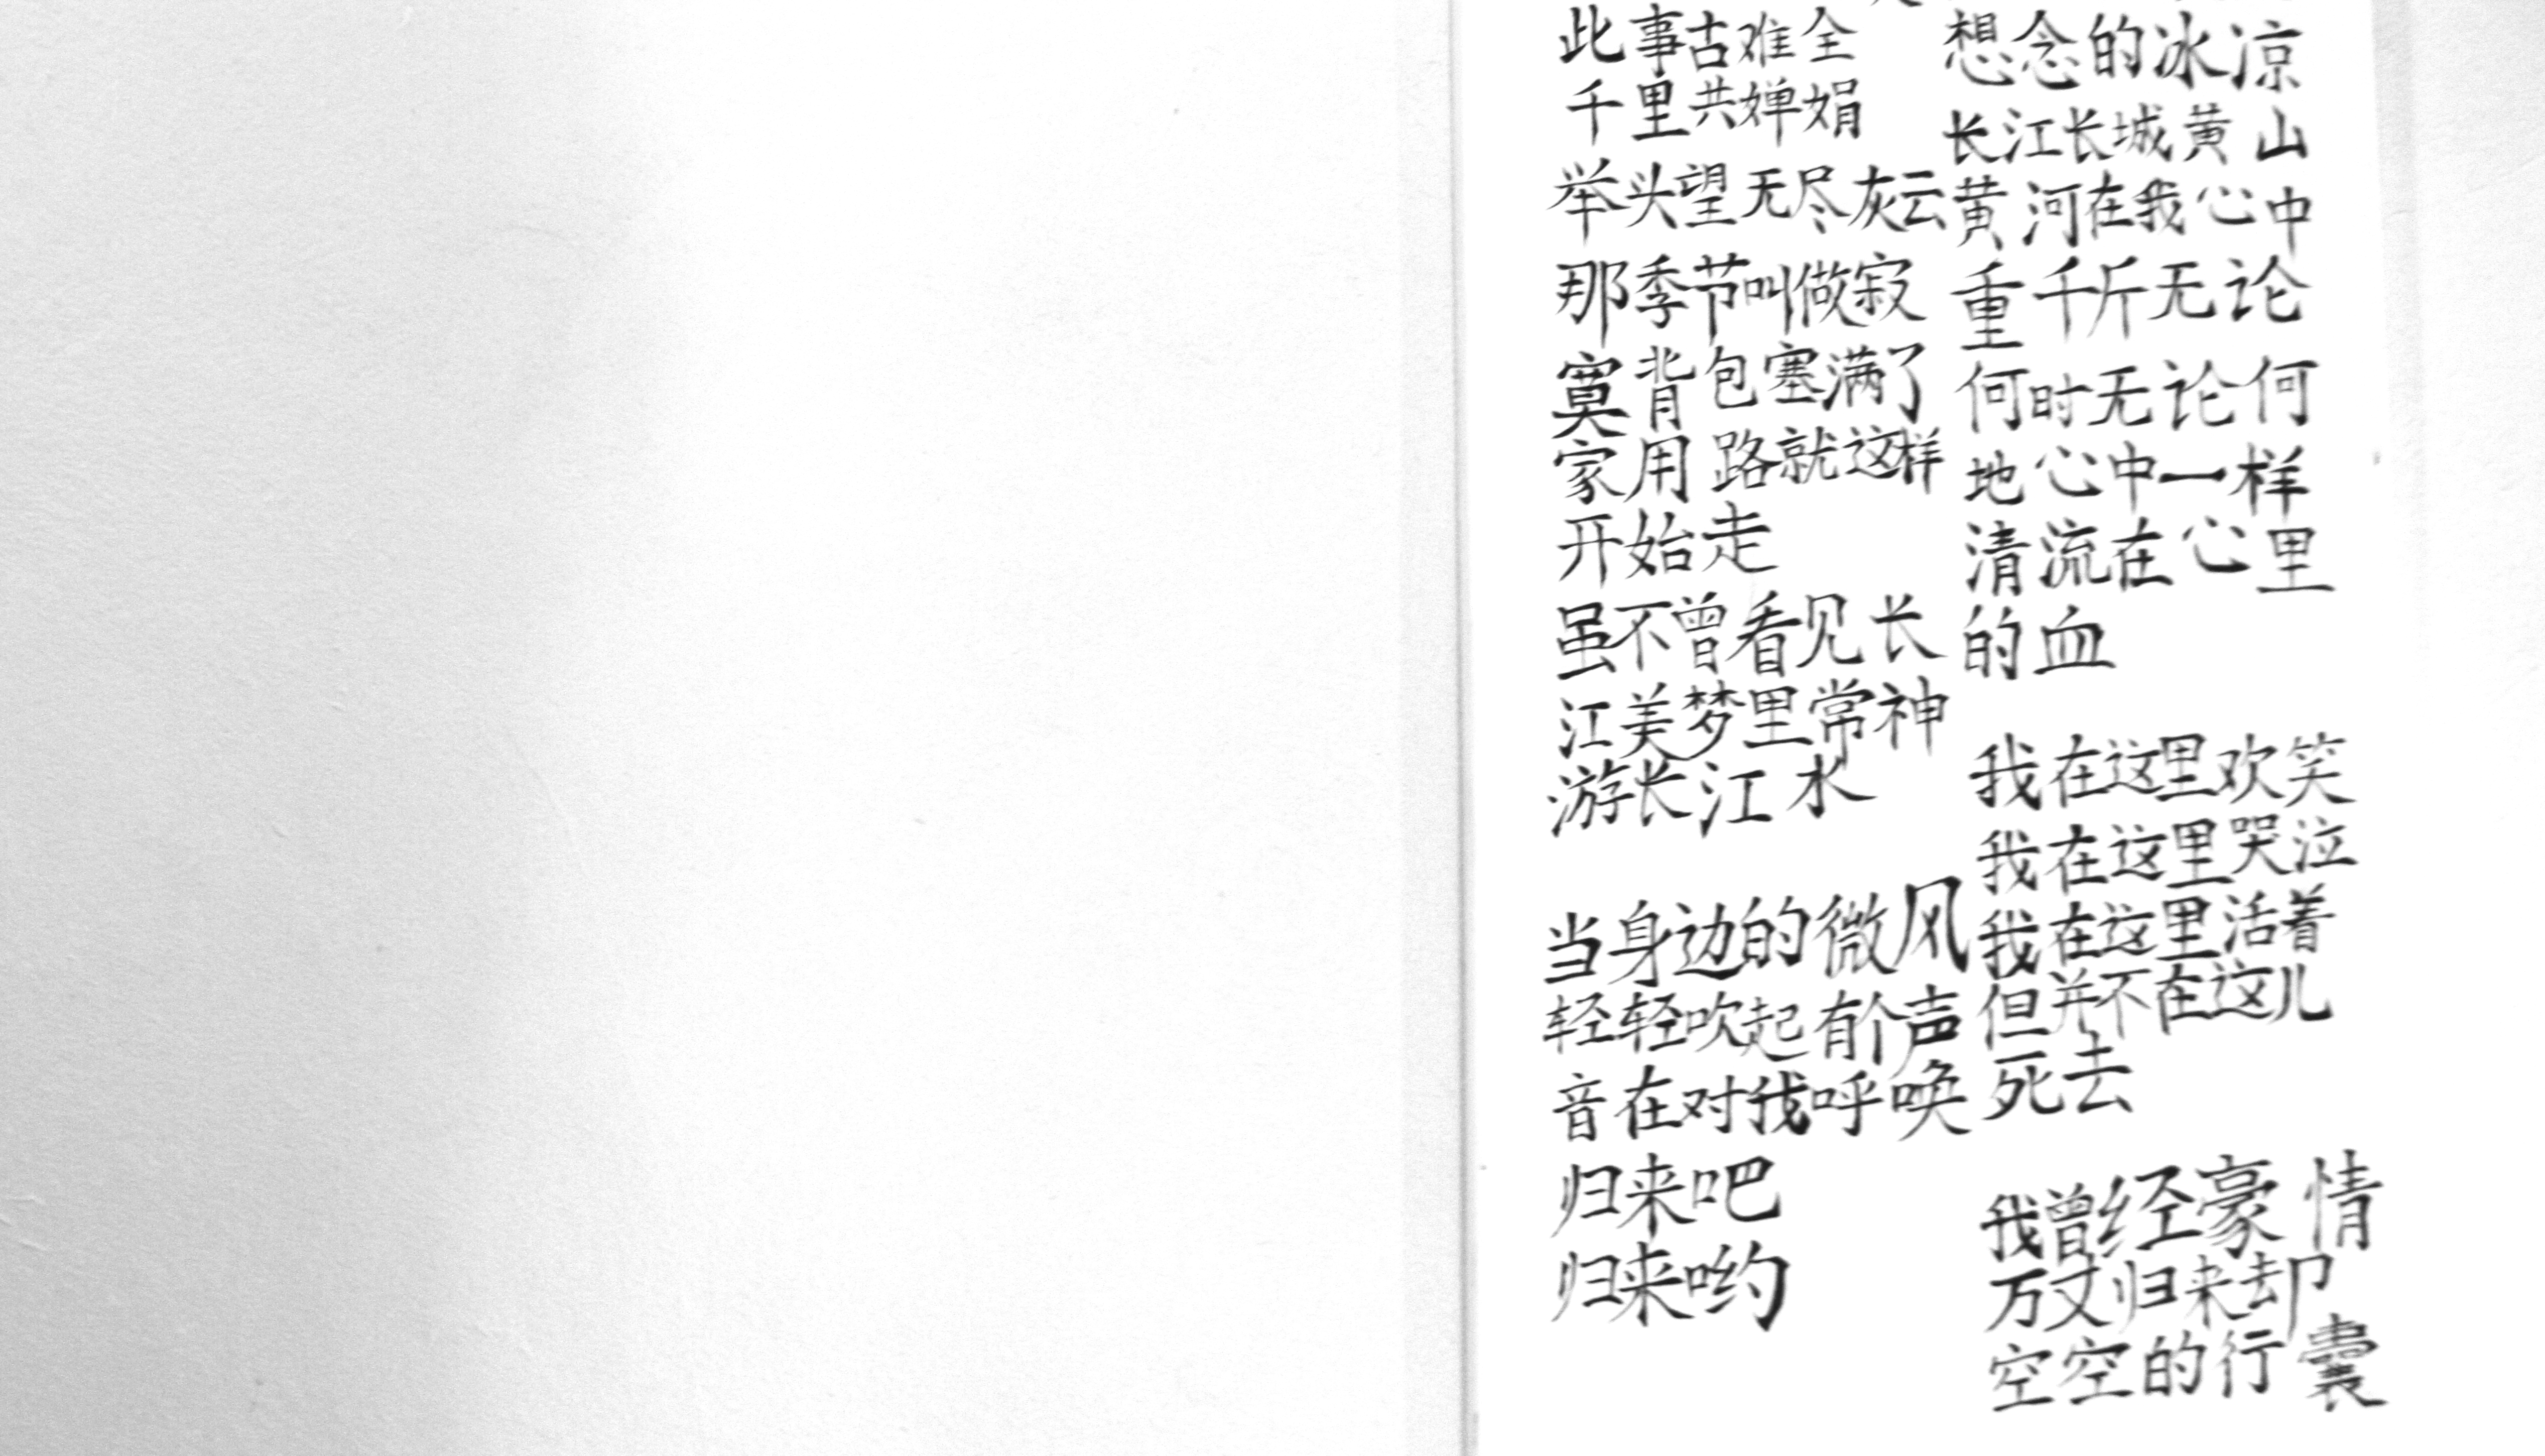 此事古难全
千里共婵娟
举头望无尽灰云
那季节叫做寂
寞背包塞满了
家用路就这样
开始走
虽不曾看见长
江美梦里常神
游长江水
当身边的微风
轻轻吹起有个声
音在对我呼唤
归来吧
归来哟
想念的冰凉
长江长城黄山
黄河在我心中
重千斤无论
何时无论何
地心中一样
清流在心里
的血
我在这里欢笑
我在这里哭泣
我在这里活着
但并不在这儿
死去
我曾经豪情
万丈归来却
空空的行囊